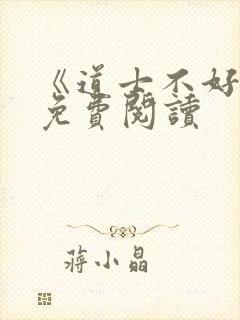 《道士不好
免費閱讀
蔣小晶